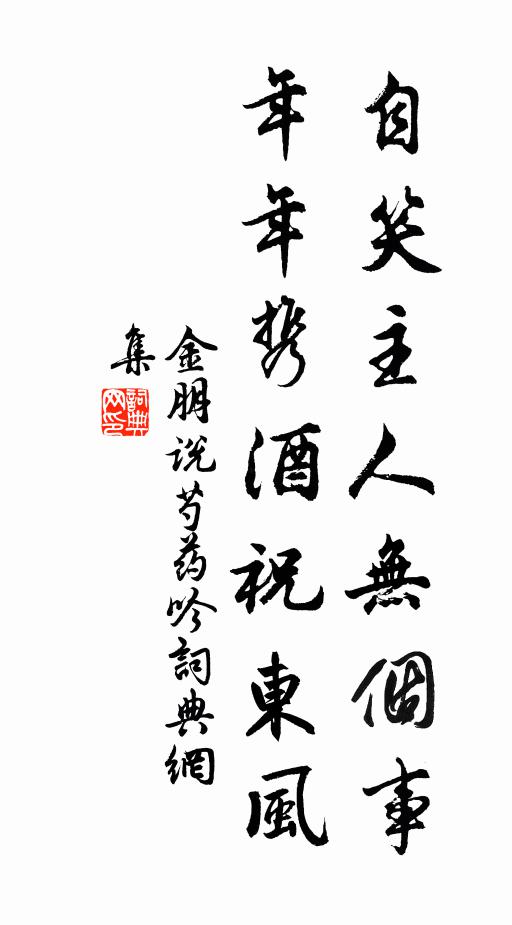 自笑主人無個事
年年携酒祝東風
金朋说芍药吟詞典網
集
詞典
网印